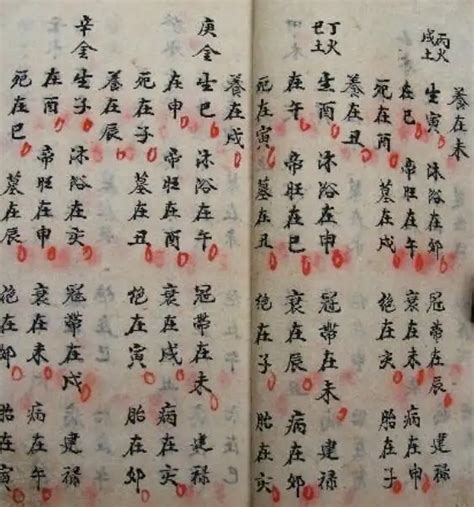 養在未
丙火
戊土
生寅 沐浴在卯 冠帶在辰 建禄
在巳 帝旺在午 衰在未 病在申
死在酉 墓在戌 絶在亥 胎在子
養在丑
丁火
己土
生酉 沐浴在申 冠帶在未 建禄
在午 帝旺在巳 衰在辰 病在卯
死在寅 墓在丑 絶在子 胎在亥
養在戌
庚金 生巳 沐浴在午 冠帶在未 建禄
在申 帝旺在酉 衰在戌 病在亥
死在子 墓在丑 絶在寅 胎在卯
養在辰
辛金 生子 沐浴在亥 冠帶在戌 建禄
在酉 帝旺在申 衰在未 病在午
死在巳 墓在辰 絶在卯 胎在寅